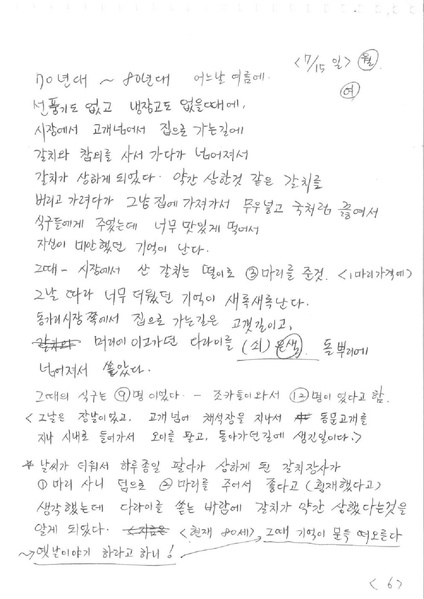 <7/15 일> 월
여
70년대 ~ 80년대 어느날 여름에.
선풍기도 없고 냉장고도 없을때에,
시장에서 고개넘어서 집으로 가는길에
갈치와 참외를 사서 가다가 넘어져서
갈치가 상하게 되었다. 약간 상한것 같은 갈치를
버리고 가려다가 그냥 집에 가져가서 무우넣고 국처럼 끓여서
식구들에게 주었는데 너무 맛있게 먹어서
자신이 미안했던 기억이 난다.
그때 - 시장에서 산 갈치는 떨이로 ③마리를 준것. <1마리가격에>
그날 따라 너무 더웠던 기억이 새록새록난다.
동가리시장쪽에서 집으로 가는길은 고갯길이고,
머리에 이고가던 다라이를 (쇠) 은색. 돌뿌리에
넘어져서 쏟았다.
그때의 식구는 ⑨명이었다 - 조카들이와서 ⑫명이 있다고 함.
<그날은 장날이었고, 고개넘어 채석장을 지나서 동문고개를
지나 시내로 들어가서 오이를 팔고, 돌아가던길에 생긴일이다.>
* 날씨가 더워서 하루종일 팔다가 상하게 된 갈치장사가
① 마리 사니 덤으로 ② 마리를 주어서 좋다고 (횡재했다고)
생각했는데 다라이를 쏟는 바람에 갈치가 약간 상했다는것을
알게 되었다. <현재 80세> 그때 기억이 문득 떠오른다
~> 옛날이야기 하라고 하니!
<6>